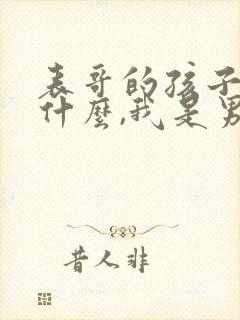 表哥的孩子
什麼,我是男
昔人非